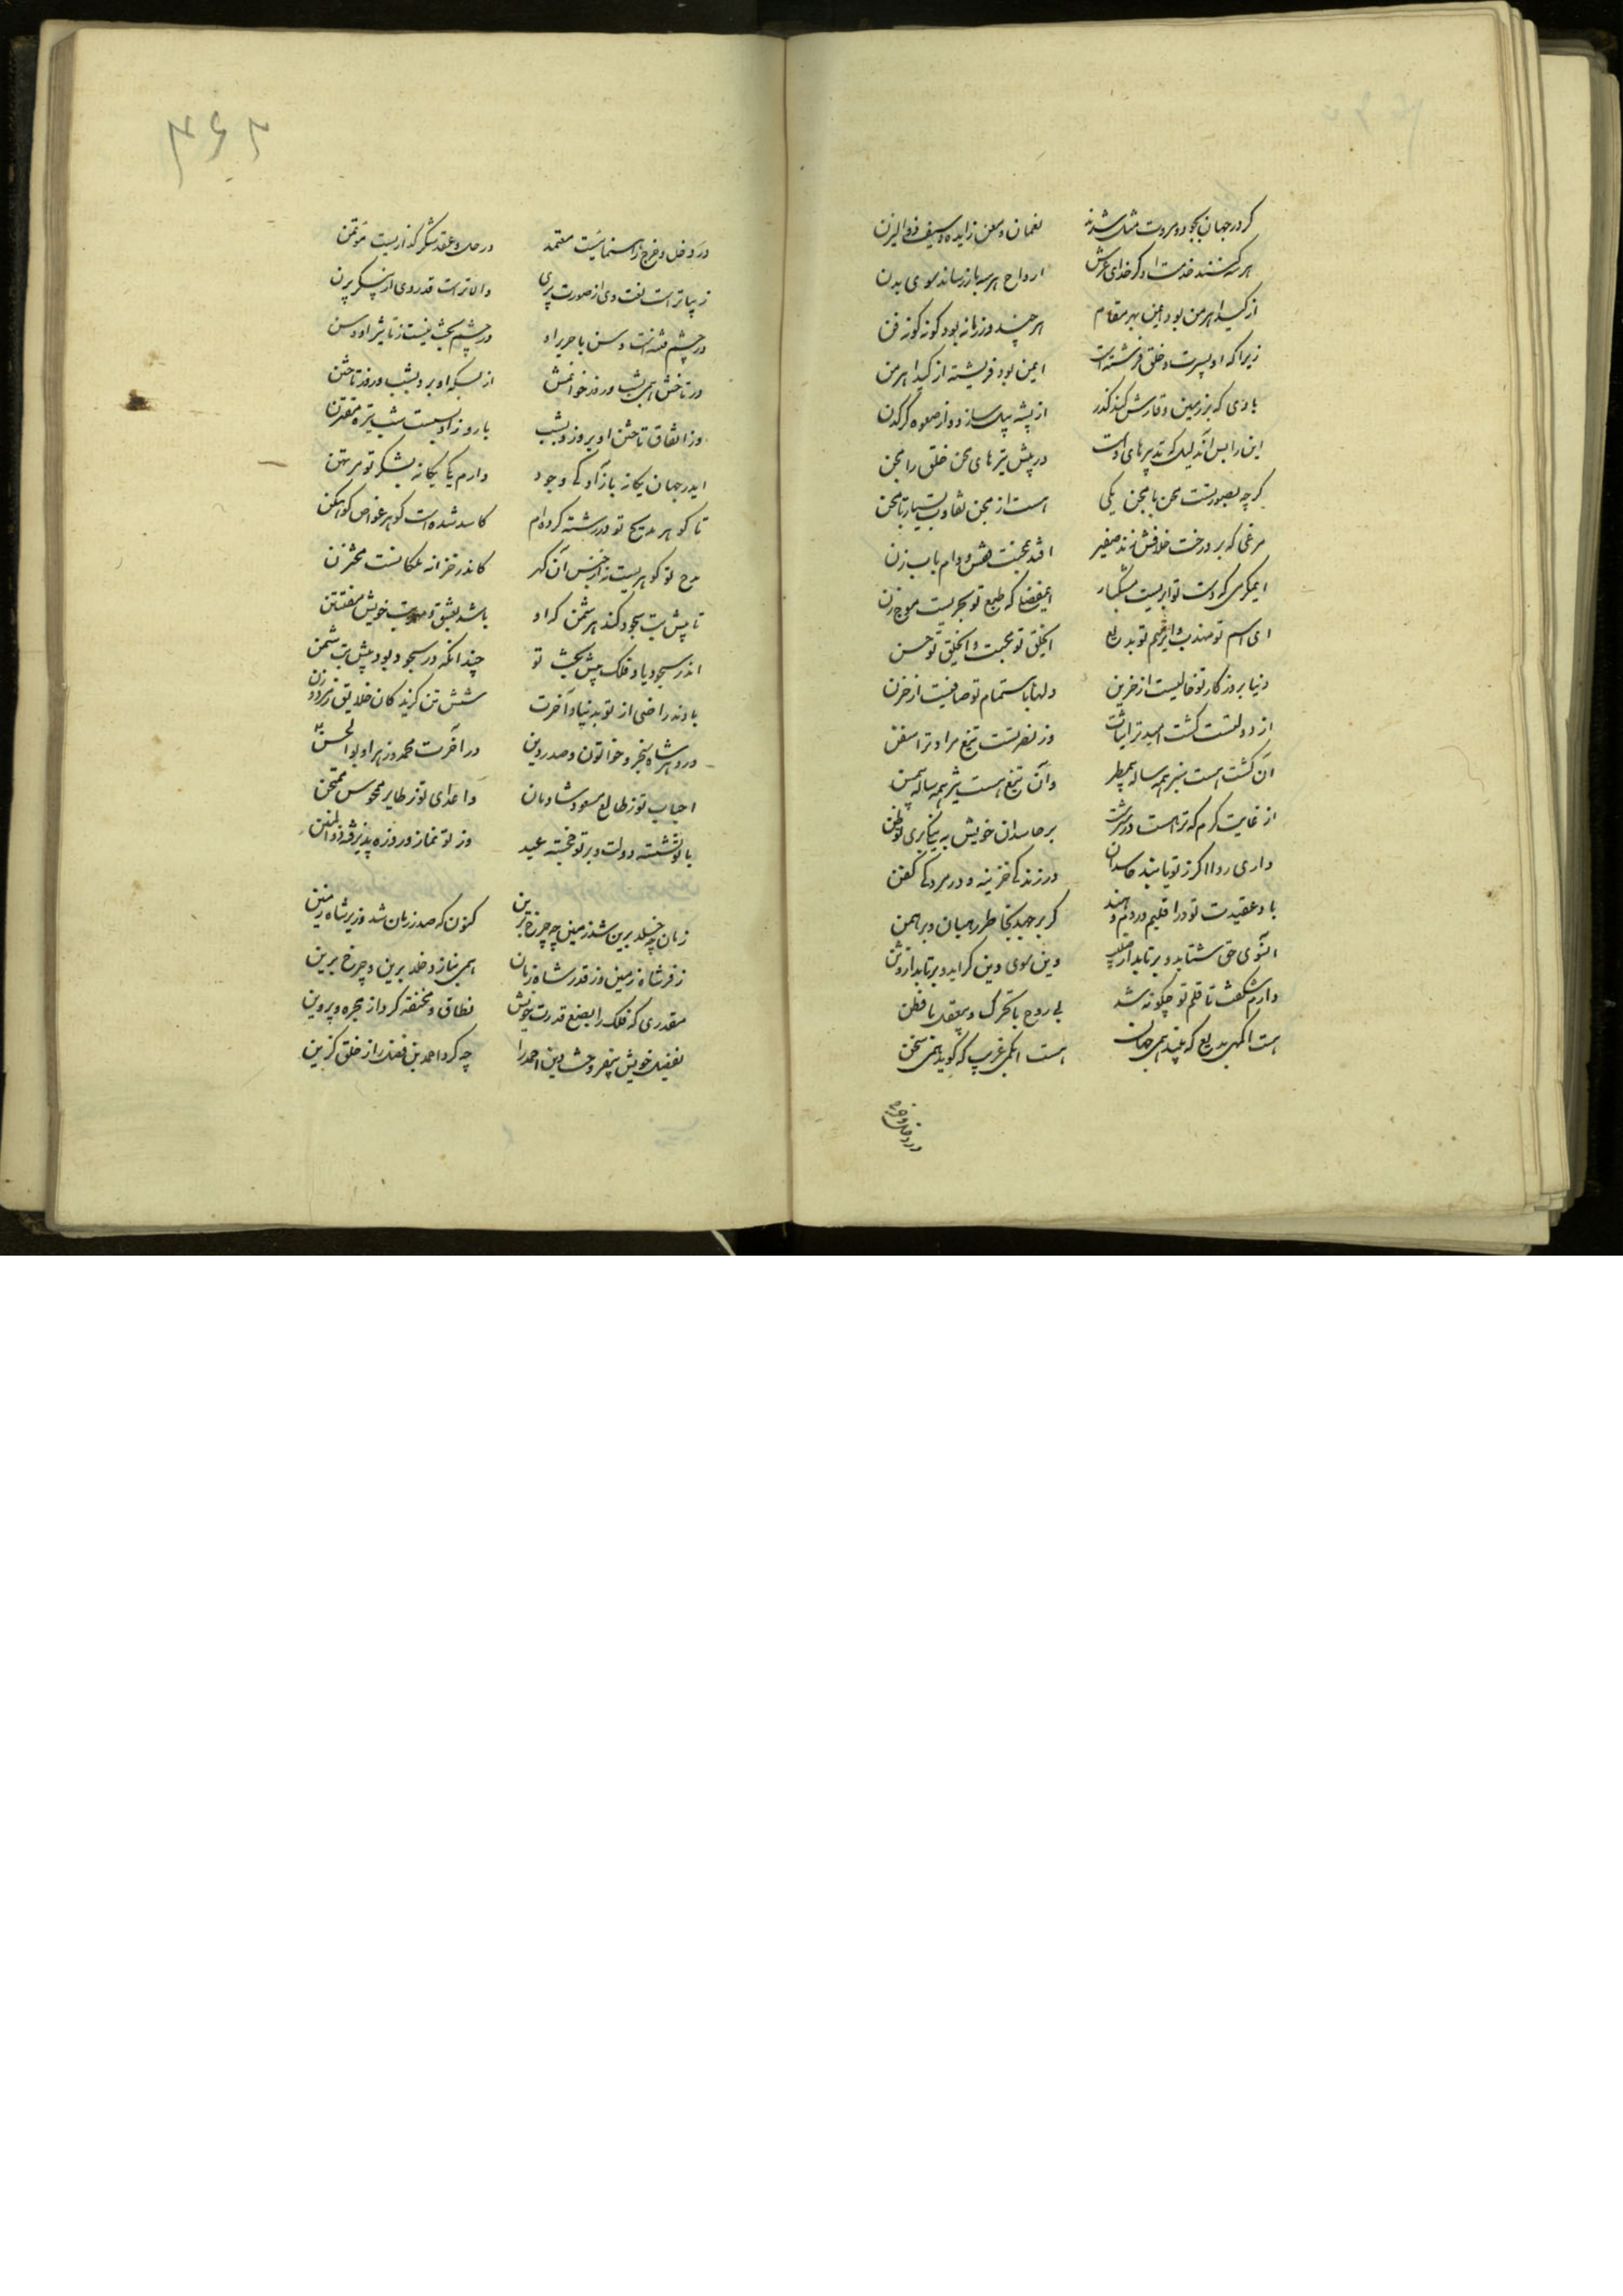 گر در جهان بجود و مروت مثل شدند نعمان و معن زایده و سیف ذوالیزن
هر سه کنند خدمت او گر خدای عرش ارواح هر سه باز رساند سوی بدن
از کید اهرمن بود ایمن بهر مقام هر چند در زمانه بود گونه گونه فن
زیرا که او بسیرت و خلق فرشته است ایمن بود فریشته از کید اهرمن
بادی که بر زمین وقارش کند گذر از پشه پیل سازد و از صعوه کرگدن
این را بس آنکه تدبیرهای اوست در پیش تیرهای محن خلق را مجن
گرچه بصورتست محن با مجن یکی هست از مجن تفاوت بسیار تا محن
مرغی که بر درخت خلافش زند صفیر افتد بمحنت قفس و دام و بابزن
ای مکرمی که دست تو ابریست سیلبار ای مفضلی که طبع تو بحریست موج زن
ای اسم تو مهذب و ای رسم تو بدیع ای خلق تو محبت و ای خلق تو حسن
دنیا بروزگار تو خالیست از حزین دلها باهتمام تو صافیست از حزن
از دولتست کشت امید ترا نبات وز نصرتست تیغ مراد ترا سفن
آن کشت هست سبز همه ساله بی مطر وآن تیغ هست تیز همه ساله بی مسن
از غایت کرم که ترا هست در سرشت بر حاسدان خویش به نیکی بری تو ظن
داری روا اگر ز تو یابند حاسدان در زندگی خزینه و در مردگی کفن
باد عقیدت تو در اقلیم روم و هند گر بر جهد بخاطر رهبان و برهمن
آن سوی حق شتابد و برتابد از صلیب وین سوی دین گراید و برتابد از وثن
دارم شگفت تا قلم تو چگونه شد بی روح با تحرک و بی عقل با فطن
هست اکمهی بدیع که بیند همی جهان هست ابکمی غریب که گوید همی سخن
در دخل و خرج
۳۶۲
در دخل و خرج راهنماییست معتمد در حل و عقد شکرگذاریست مؤتمن
زیباتر است لفت وی از صورت پری والاتر است قدر وی از پیکر پرن
در چشم فتنه است وسن با صریر او در چشم بخت نیست ز تأثیر او وسن
در تاختن همی شب و روز خوانمش از بسکه او برد بشب و روز تاختن
وز اتفاق تاختن او بروز و شب با روز او بست شب تیره مقترن
اندر جهان یگانه بازادگی وجود دارم یکی یگانه بشکر تو مرتهن
تا گوهر مدیح تو در رشته کرده ام کاسد شده است گوهر غواص کوهکن
مدح تو گوهریست نه از جنس آن گهر کاندر خزانه ملکانست مختزن
تا پیش بت سجود کند هر شمن که او باشد بعشق صورت خویش مفتتن
اندر سجود باد فلک پیش بخت تو چندانکه در سجود بود پیش بت شمن
بادند راضی از تو بدنیا و آخرت شش تن گزیدگان خلایق ز مرد و زن
در دهر شاه سنجر و خاتون و صدر دین در آخرت محمد و زهرا و بوالحسن
احباب تو ز طالع مسعود شادمان واعدای تو ز طایر منحوس ممتحن
با تو نشسته دولت و بر تو خجسته عید وز تو نماز و روزه پذیرفته ذوالمنن
زمان چه خلد برین شد زمین چه چرخ برین کنون که صدر زمان شد وزیر شاه زمین
ز فر شاه زمین وز قدر شاه زمان همی بنازد خلد برین و چرخ برین
مقدری که فلک را بصنع قدرت خویش نطاق و مخنقه کرد از مجره و پروین
بفضل خویش بیفروخت دین احمد را چو کرد احمد بن فضل را ز خلق گزین